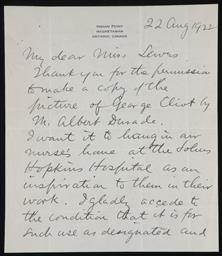 INDIAN POINT
MAGNETAWAN
ONTARIO, CANADA
22 Aug 1922
My dear Miss Lewes
Thank you for the permission
to make a copy of the
picture of George Eliot by
M. Albert Durade.
I want it to hang in our
nurses home at the Johns
Hopkins Hospital as an
inspiration to them in their
work. I gladly accede to
the condition that it is for
such use as designated and